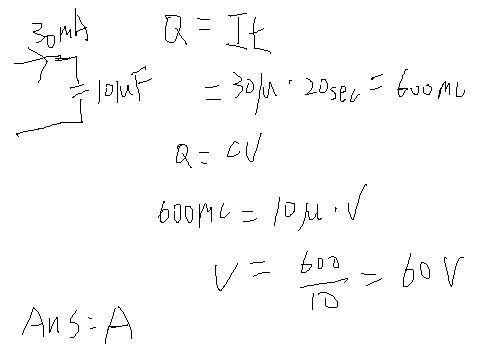 30mA
10μF
Q = It
= 30μ · 20sec = 600mc
Q = CV
600mc = 10μ · V
V = 600/10 = 60V
Ans = A